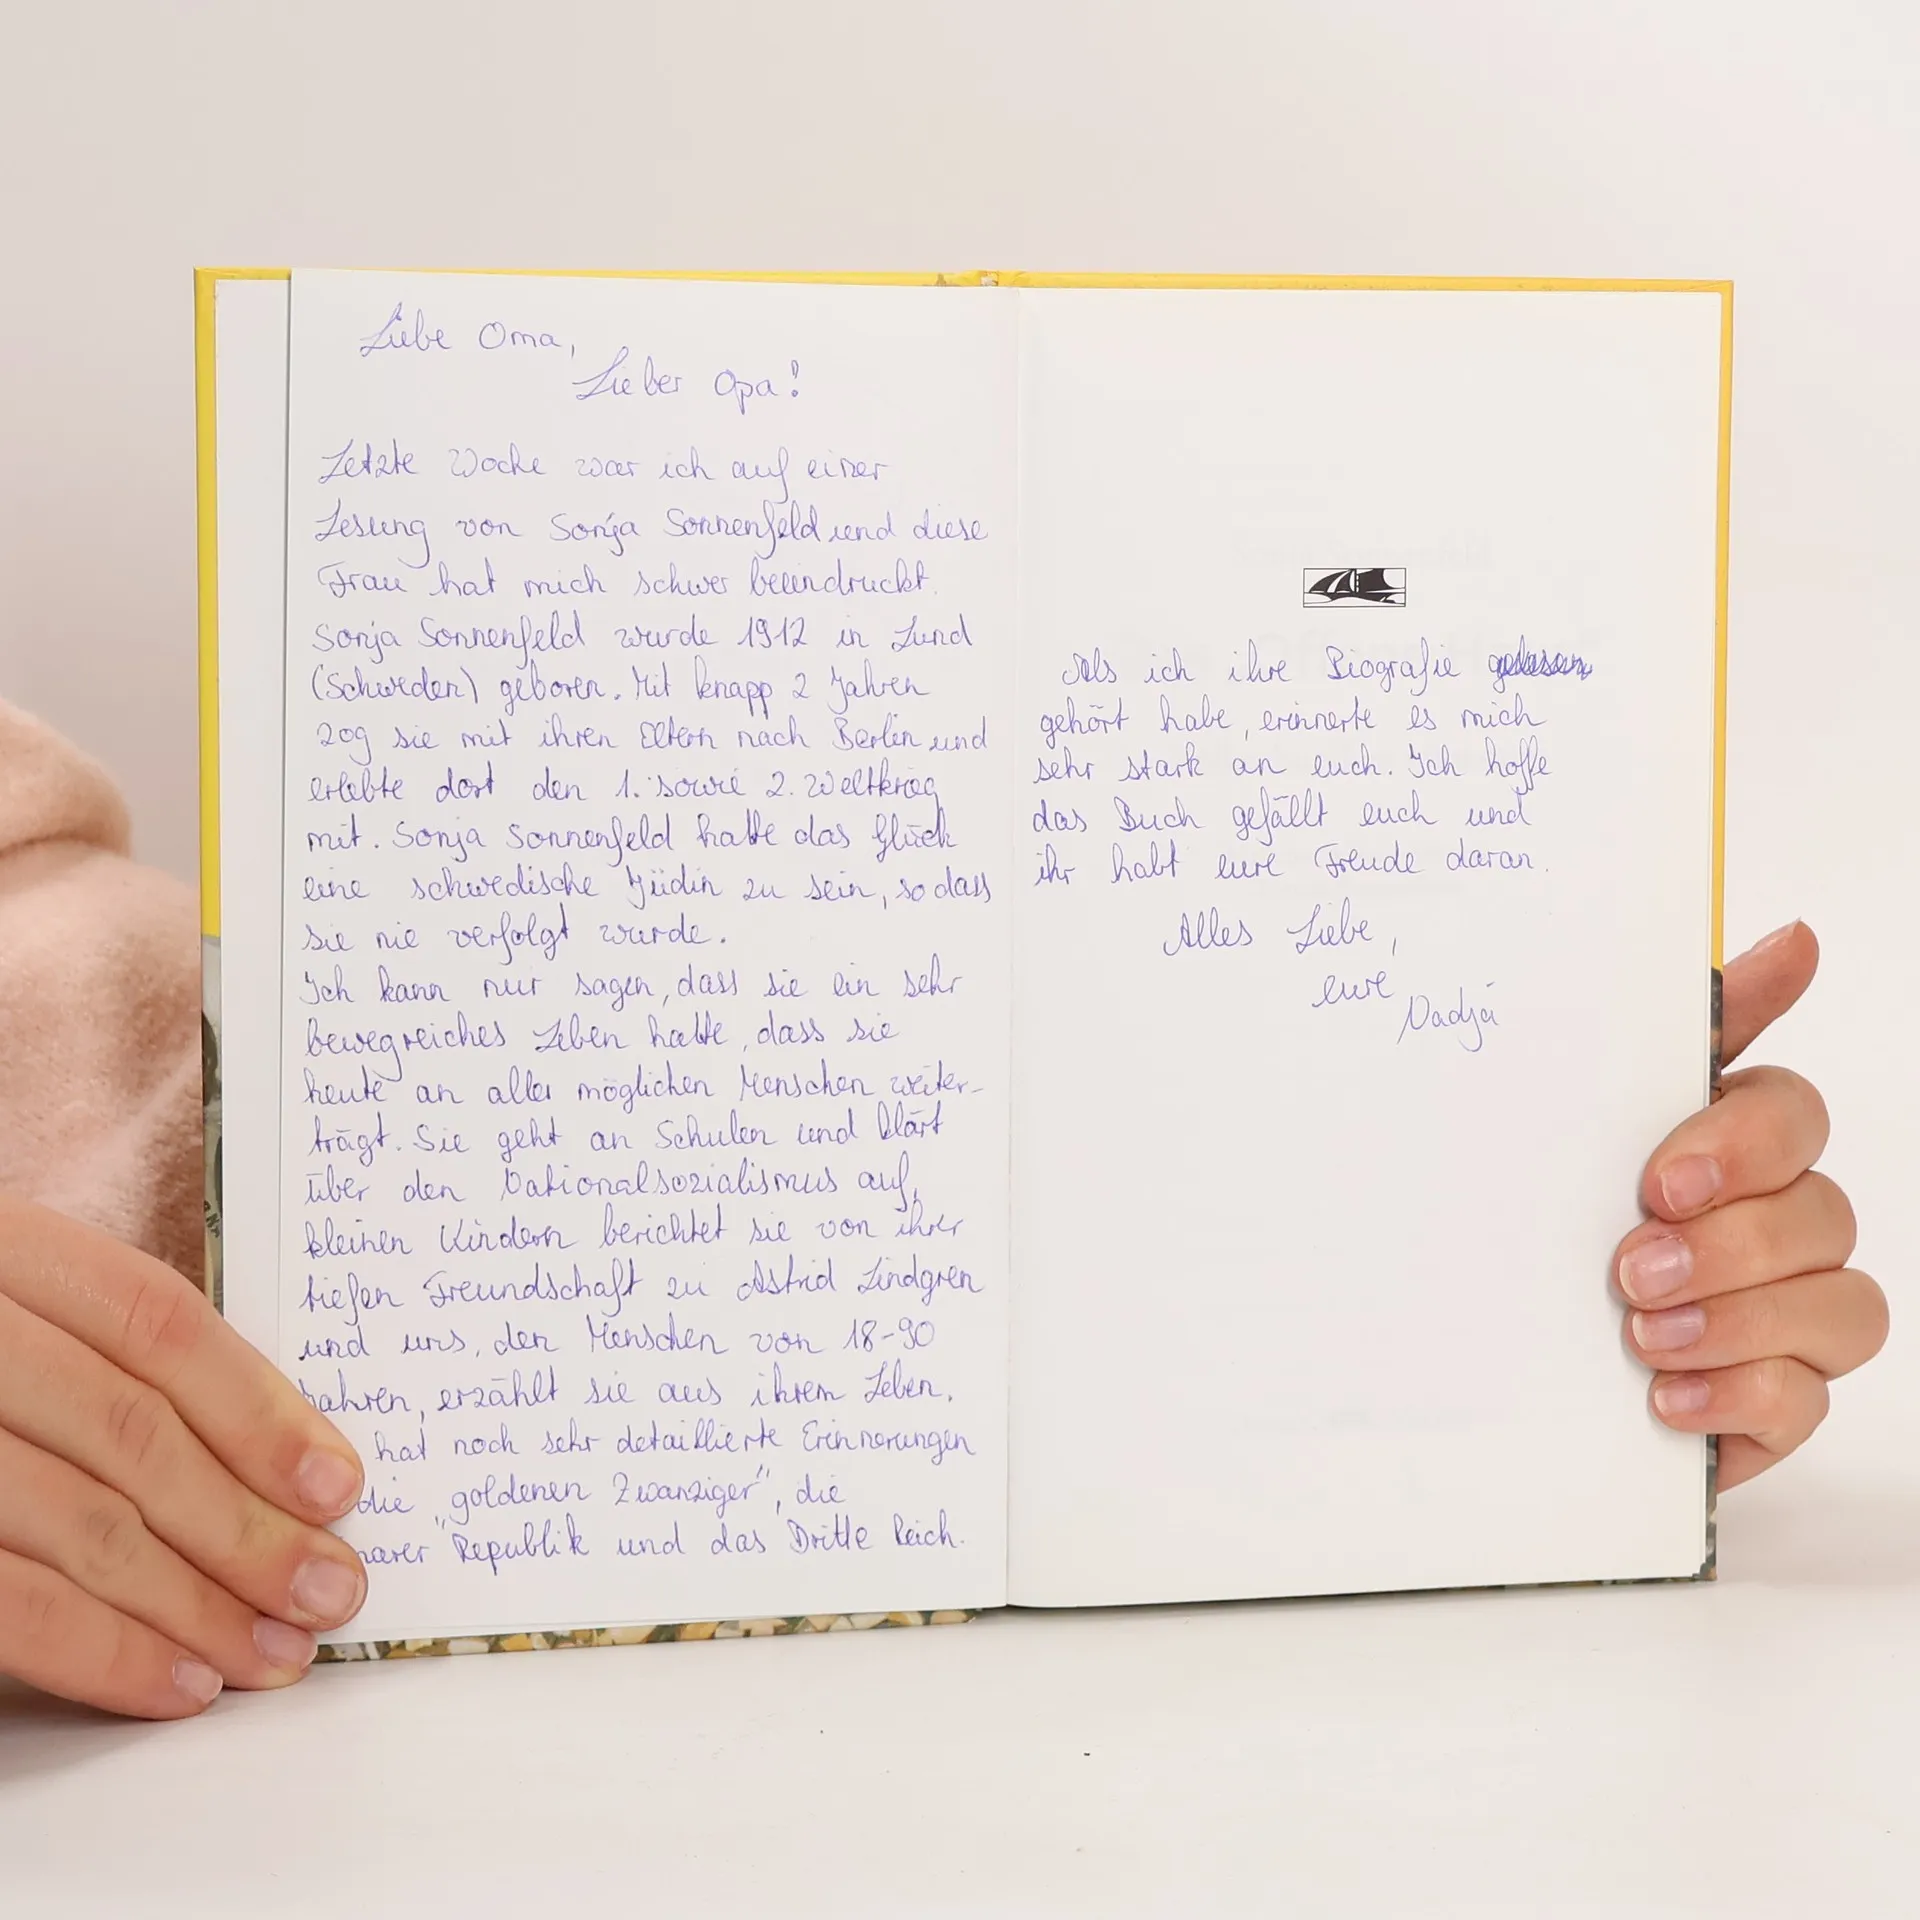 Liebe Oma,
Lieber Opa!
Letzte Woche war ich auf einer
Lesung von Sonja Sonnenfeld und diese
Frau hat mich schwer beeindruckt.
Sonja Sonnenfeld wurde 1912 in Lund
(Schweden) geboren. Mit knapp 2 Jahren
zog sie mit ihren Eltern nach Berlin und
erlebte dort den 1. sowie 2. Weltkrieg
mit. Sonja Sonnenfeld hatte das Glück
eine schwedische Jüdin zu sein, so dass
sie nie verfolgt wurde.
Ich kann nur sagen, dass sie ein sehr
bewegreiches Leben hatte, dass sie
heute an aller möglichen Menschen weiter-
trägt. Sie geht an Schulen und klärt
über den Nationalsozialismus auf,
kleinen Kindern berichtet sie von ihrer
tiefen Freundschaft zu Astrid Lindgren
und uns, den Menschen von 18-90
Jahren, erzählt sie aus ihrem Leben.
hat noch sehr detaillierte Erinnerungen
die „goldenen Zwanziger", die
marer Republik und das Dritte Reich.
Als ich ihre Biografie gelesen
gehört habe, erinnerte es mich
sehr stark an euch. Ich hoffe
das Buch gefällt euch und
ihr habt eure Freude daran.
Alles Liebe,
eure
Nadja